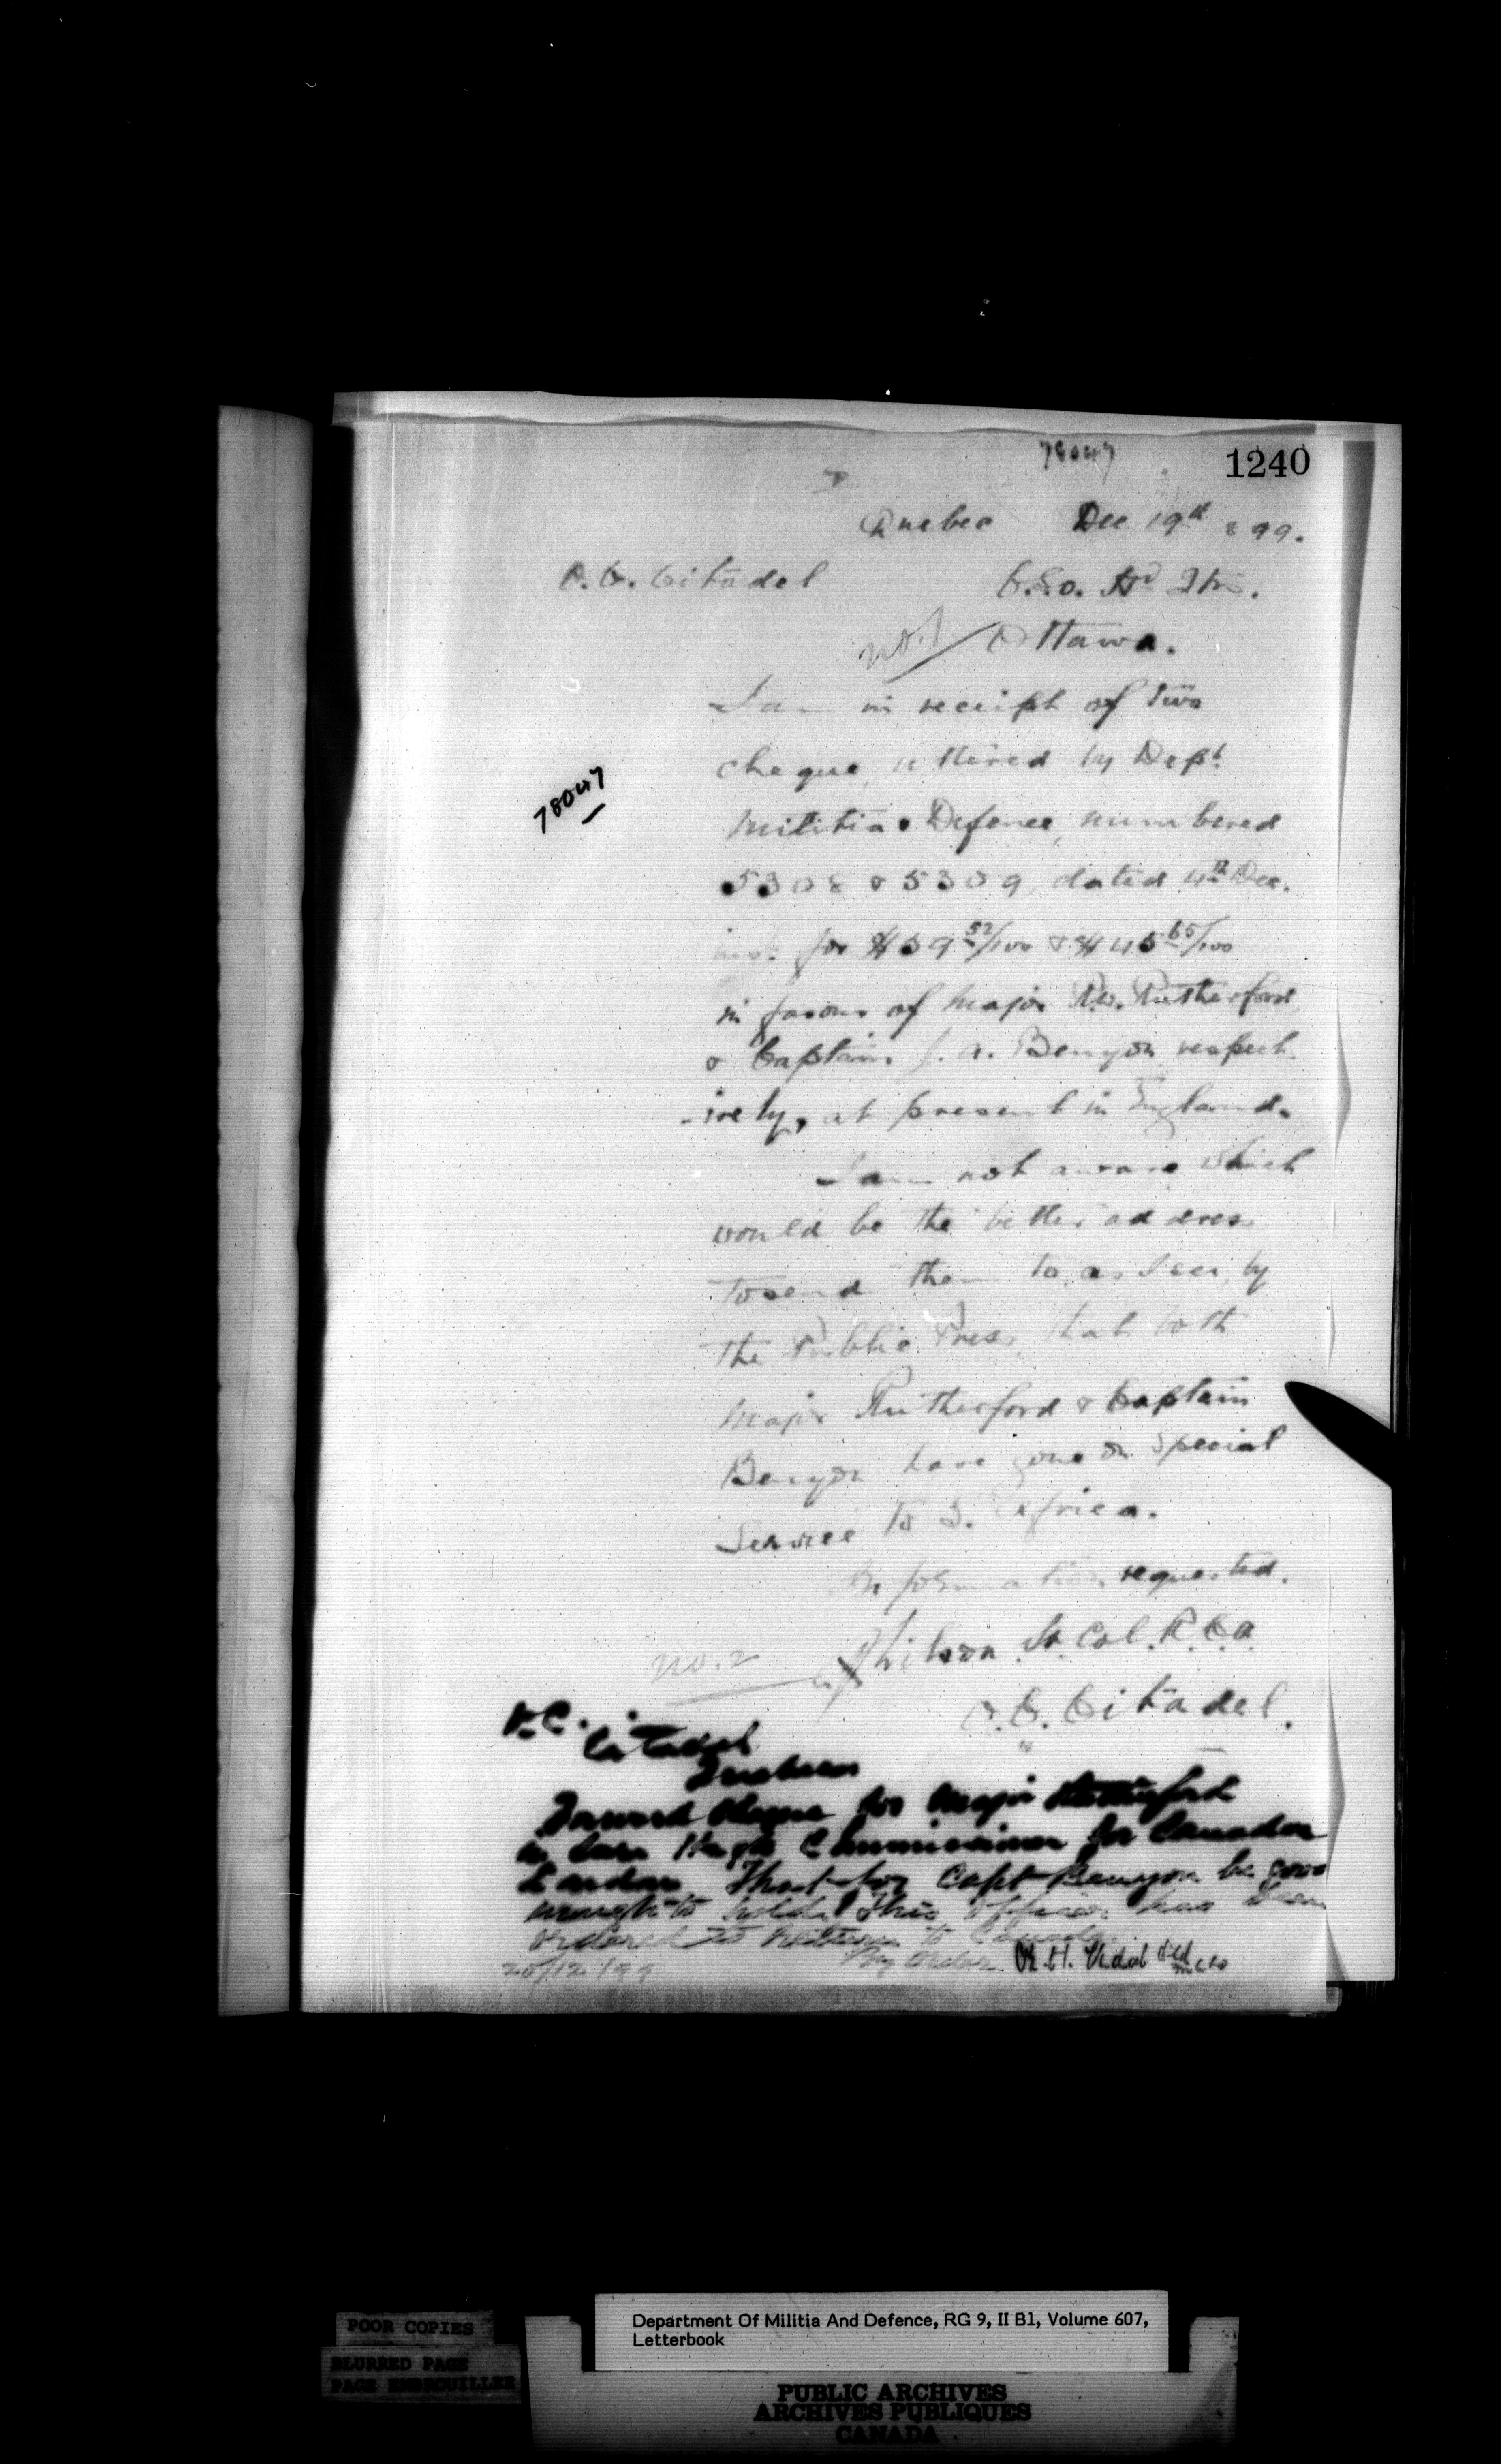 78047
1240
Quebec Dec 19th 99.
O.C. Citadel
C.S.O. Hd Qrs.
No. 1 Ottawa.
I am in receipt of two
cheques uttered by Dept
Militia & Defence, numbered
78047
5308 & 5309, dated 4th Dec.
inst. for $39 52/100 & $45 65/100
in favour of Major R.W. Rutherford
& Captain J. A. Benyon respect-
-ively, at present in England.
I am not aware which
would be the better address
to send them to, as I see, by
the Public Press, that both
Major Rutherford & Captain
Benyon have gone on Special
Service to S. Africa.
Information requested.
Wilson Lt. Col. R.C.A.
No. 2
O.C. Citadel.
O.C.
Citadel
Quebec
Forward cheque for Major Rutherford
in care High Commissioner for Canada
London. That for Capt Benyon be good
enough to hold. This officer has been
ordered to return to Canada.
20/12/99 By Order
H. Vidal
POOR COPIES
BLURRED PAGE
PAGE EMBROUILLEE
Department Of Militia And Defence, RG 9, II B1, Volume 607,
Letterbook
PUBLIC ARCHIVES
ARCHIVES PUBLIQUES
CANADA